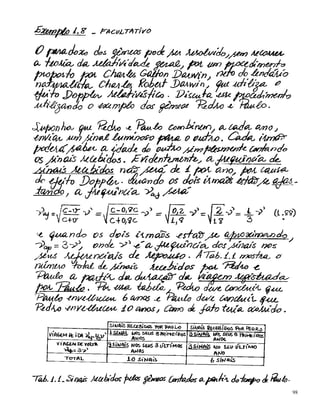 Exemplo 1.8 - FACULTATIVO
O paradoxo dos gêmeos pode ser resolvido, sem recorrer
a teoria da relatividade geral, por um procedimento
proposto por Charles Galton Darwin, neto do lendário
naturalista Charles Robert Darwin, que utiliza o
efeito Doppler relativístico. Discuta esse procedimento
utilizando o exemplo dos gêmeos Pedro e Paulo.
Suponha que Pedro e Paulo combinem, a cada ano,
enviar um sinal luminoso para o outro. Cada irmão
poderá saber a idade do outro simplesmente contando
os sinais recebidos. Evidentemente, a frequência de
sinais recebidos não será de 1 por ano, por causa
do efeito Doppler. Quando os dois irmãos estão se afas-
tando, a frequência ν_af será
ν_af = √(c-v/c+v) ν' = √(c-0,8c/c+0,8c) ν' = √(0,2/1,8) ν' = √(2/18) ν' = 1/3 ν' (1.88)
e quando os dois irmãos estão se aproximando,
ν_ap = 3ν', onde ν' é a frequência dos sinais nos
seus referenciais de repouso. A Tab. 1.1 mostra o
número total de sinais recebidos por Pedro e
Paulo a partir da duração da viagem registrada
por Paulo. Por essa tabela, Pedro deve concluir que
Paulo envelheceu 6 anos e Paulo deve concluir que
Pedro envelheceu 10 anos, como de fato teria ocorrido.
SINAIS RECEBIDOS POR PAULO SINAIS RECEBIDOS POR PEDRO
VIAGEM DE IDA 1 SINAL NOS SEUS 3 PRIMEIROS ANOS 3 SINAIS NOS SEUS 9 PRIMEIROS ANOS
VIAGEM DE VOLTA ν_ap = 3ν' 9 SINAIS NOS SEUS 3 ÚLTIMOS ANOS 3 SINAIS NO SEU ÚLTIMO ANO
TOTAL 10 SINAIS 6 SINAIS
Tab. 1.1. Sinais recebidos pelos gêmeos contados a partir do tempo de Paulo.
99